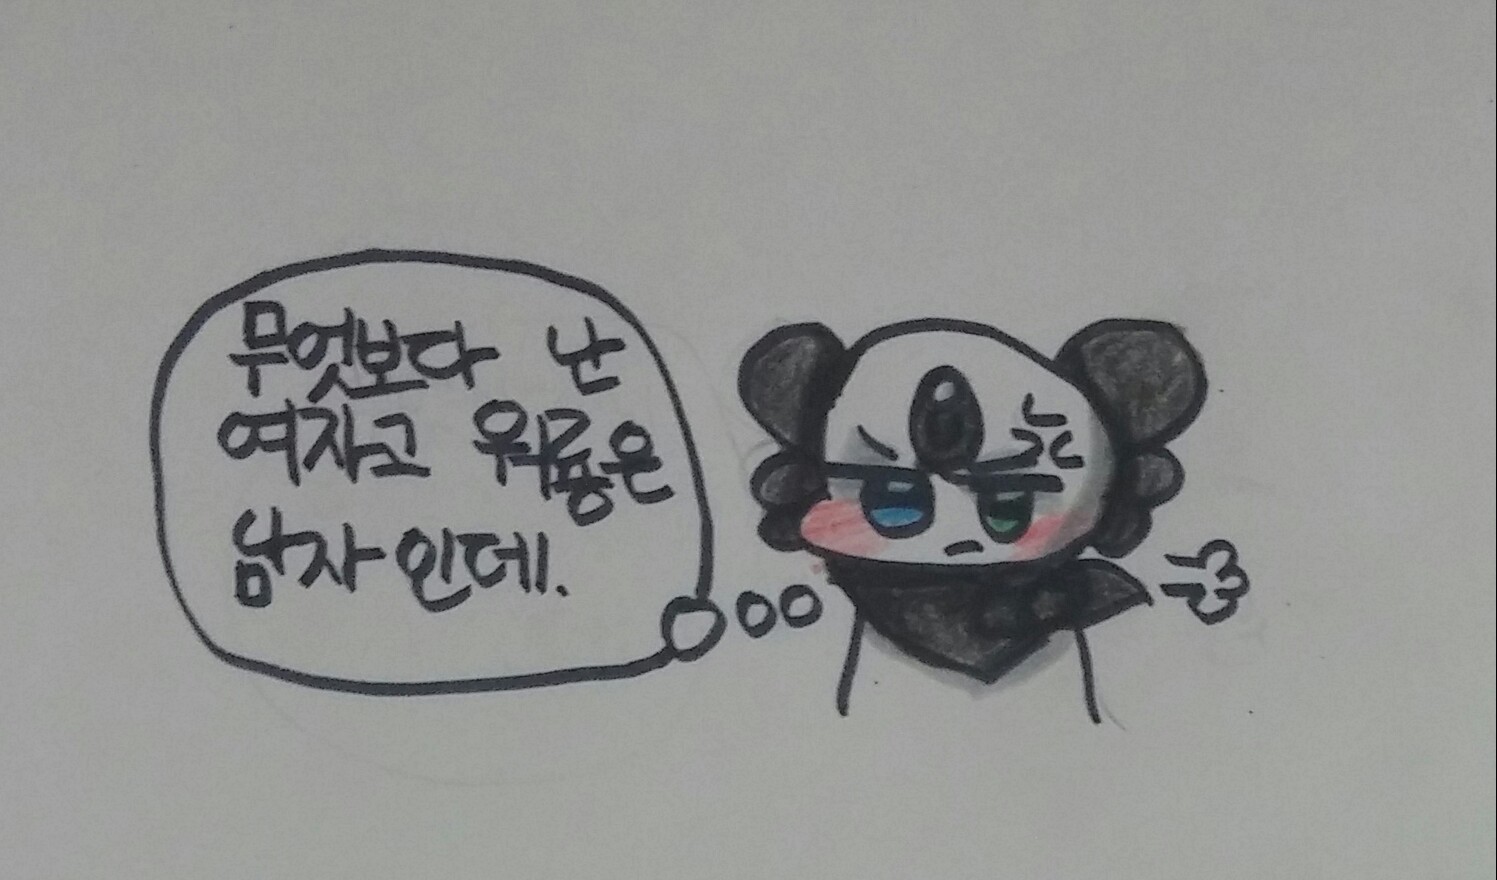 무엇보다 난
여자고 워룡은
남자인데.